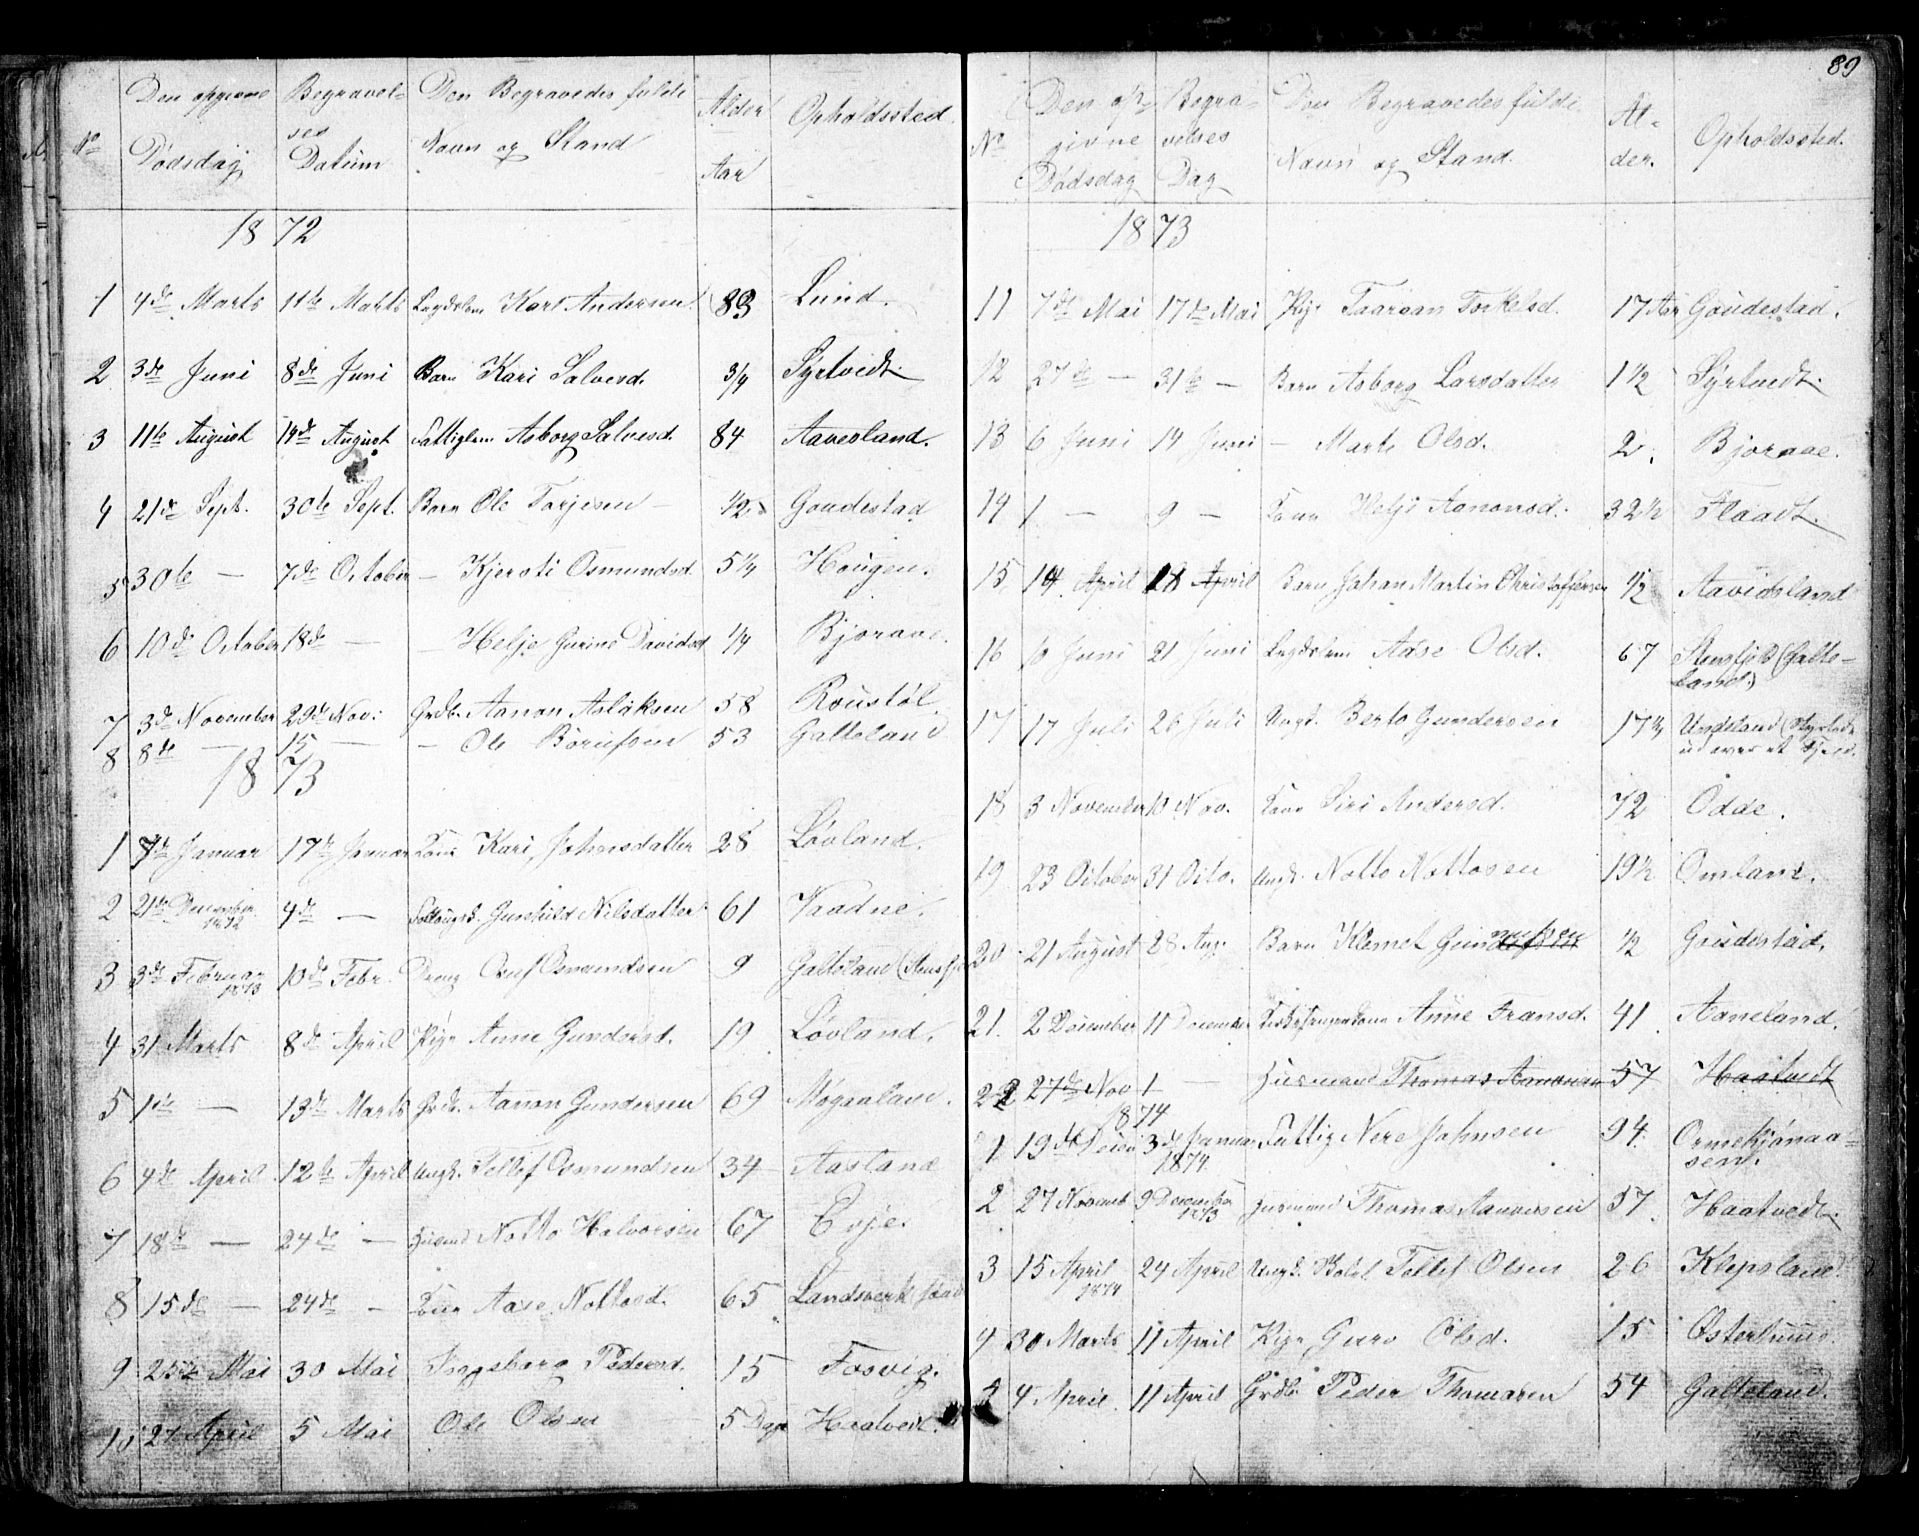 89
No Den opgivne Dødsdag Begravelses Datum Den Begravedes fulde Navn og Stand Alder Aar Opholdssted.
1872
1 4de Marts 11te Marts Lægdslem Kari Andersen 83 Lund.
2 3de Juni 8de Juni Barn Kari Salvesd. 3/4 Syrtvedt.
3 11te August 14de August Fattiglem Asborg Salvesd. 84 Aavesland.
4 21de Sept. 30te Sept. Barn Ole Torjesen – 1/2 Goudestad
5 30te — 7de October – Kjersti Osmundsd. 5 1/4 Hougen.
6 10de October 18de — — Helje Gurine Davidsd 1/4 Bjoraae.
7 3de November 29de Nov: Grdb. Aanon Aslaksen 58 Roustøl.
8 8de — 15 — – Ole Børufsen 53 Galteland
1873
1 7de Januar 17de Januar Kone Kari Johnsdatter 28 Løvland.
2 21de December 1872 4de — Gunhild Nilsdatter 61 Vraadne.
3 3de Februar 1873 10de Febr. Dreng Osmundsen 9 Galteland
4 31 Marts 8de April Pige Anne Gundersd. 19 Løvland.
5 1ste — 13de Marts Grdb. Aanon Gundersen 69
6 4de April 12te April Ungk. Tellef Osmundsen 34 Aasland
7 18de — 24de — Husmd Notto Halvorsen 67 Evje.
8 15de — 24de – Kone Aase Nottosd. 65 Landsverk
9 25de Mai 30 Mai Ingeborg Pedersd. 15 Fosvig.
10 27 April 5 Mai Ole Olsen 5 Dage Haatvedt.
No Den opgivne Dødsdag Begravelses Dag Den Begravedes fulde Navn og Stand. Alder. Opholdssted.
1873
11 7de Mai 17de Mai Pige Taaraan Torkelsd. 17 Aar Goudestad.
12 27de — 31te — Barn Asborg Larsdatter 1 1/2 Syrtvedt.
13 6 Juni 14 Juni – Marte Olsd. 2. Bjoraae.
14 1 — 9 — Kone Helje Aanonsd. 32 1/2 Flaadt.
15 14 April 21 April Barn Johan Martin Christoffersen 1/2 Aavidsland
16 10 Juni 21 Juni Lægdslem Aase Olsd. 67 Stensfjeld (Galteland.)
17 17 Juli 26 Juli Ungk. Gundersen 17 3/4 Undeland (Styrtede ud over et Fjeld.
18 3 November 10 Nov. Kone Siri Andersd. 72 Odde.
19 23 October 31 Octo. Ungk. Notto Nottosen 19 1/2 Omland.
20 21 August 28 Aug. Barn Klemet 1/2 Goudestad.
21. 2 December 11 December Anne Fransd. 41 Aaneland.
22 27de Nov 1 — Husmand Thomas Aanonsen 57 Haatvedt
1874
1 19de Decem 3de Januar 1874. Fattig Nere Johnsen 94.
2 27 Novemb 9 December 1873 Husmand Thomas Aanonsen 57 Haatvedt.
3 15 April 1874 24 April Ungk. Tellef Olsen 26 Klepsland.
4 30 Marts 11 April Pige Guro Olsd. 15 Østerhuus.
5 4 April. 11 April Grdb. Peder Thomasen 54 Galteland.